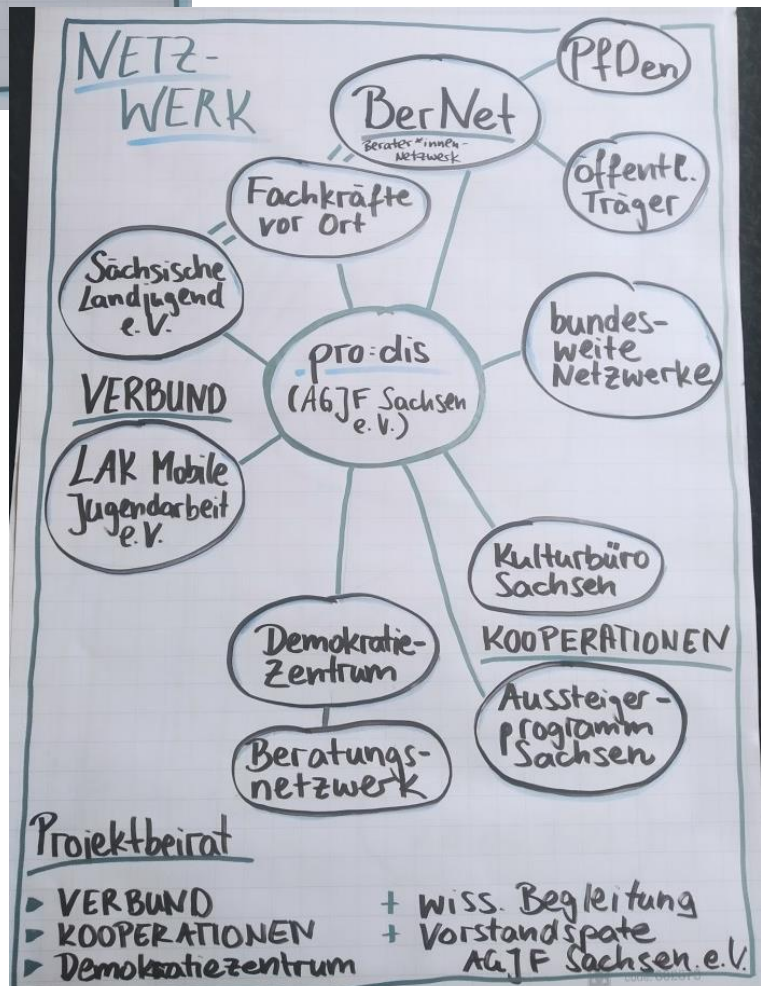 NETZ-
WERK
PfDen
BerNet
Berater*innen-
Netzwerk
öffentl.
Träger
Fachkräfte
vor Ort
Sächsische
Landjugend
e.V.
pro:dis
(AGJF Sachsen
e.V.)
bundes-
weite
Netzwerke
VERBUND
LAK Mobile
Jugendarbeit
e.V.
Kulturbüro
Sachsen
KOOPERATIONEN
Demokratie-
Zentrum
Aussteiger-
programm
Sachsen
Beratungs-
netzwerk
Projektbeirat
▸ VERBUND
▸ KOOPERATIONEN
▸ Demokratiezentrum
+ wiss. Begleitung
+ Vorstandspate
AGJF Sachsen e.V.